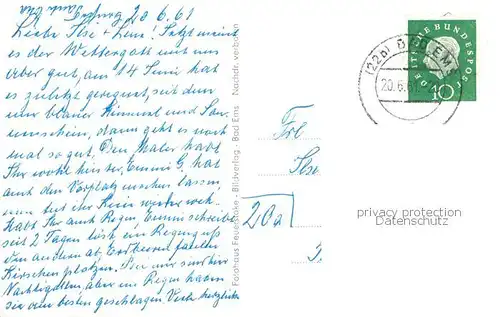 20.6.61
Liebe Ilse + Lene! Jetzt meint
es der Wettergott mit uns
aber gut, am 14 Juni hat
es zuletzt geregnet, seit dem
nur blauer Himmel und Son
nenschein, dann geht es noch
mal so gut. Den Maler habt
Ihr wohl hinter, Emmi G. hat
auch den Vorplatz machen lassen,
Habt Ihr auch Regen Emmi schreibt
seit 2 Tagen löst ein Regenguß
den andern ab, Erdbeeren faulen
Kirschen platzen. Bei uns
Nachtigallen, aber am Regen haben
sie am besten geschlagen. Viele herzliche
Fotohaus Feuerpeake - Bildverlag - Bad Ems Nachdr. verboten
Frl
Ilse
20a
(22b) BAD EMS
20.6.61
DEUTSCHE BUNDESPOST
10
privacy protection
Datenschutz